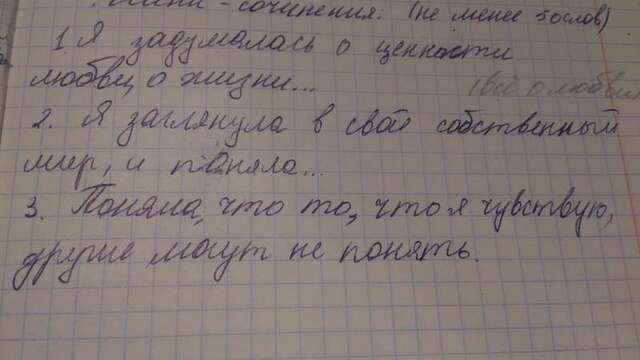 Мини - сочинения: (не менее 50 слов)
1. Я задумалась о ценности
любви, о жизни...
(всё о любви
2. Я заглянула в своё собственный
мир, и поняла...
3. Поняла, что то, что я чувствую,
другие могут не понять.